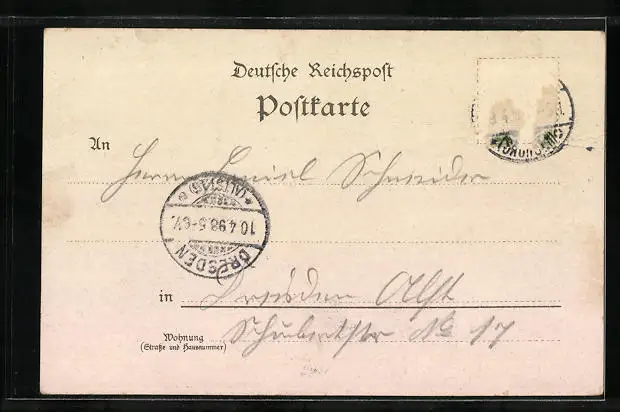 Deutsche Reichspost
Postkarte
An
Herrn Daniel Schneider
DRESDEN
10.4.98.5-6V.
(ALTST.)
in Dresden Altst
Wohnung
(Straße und Hausnummer)
Schubertstr No 17